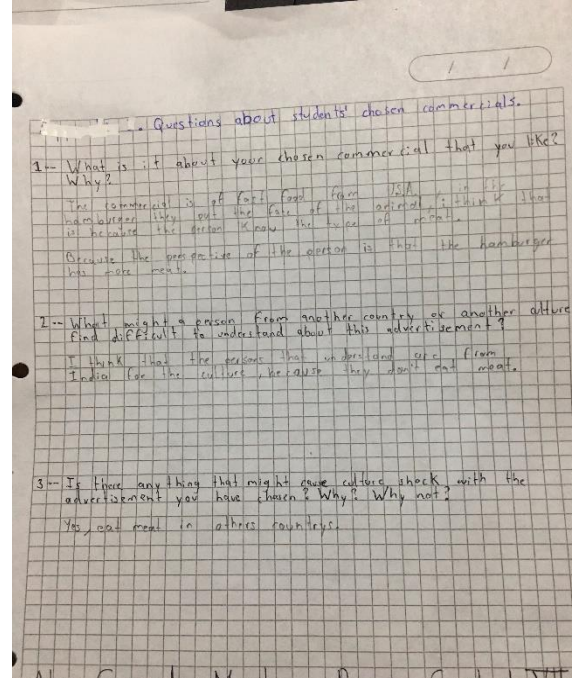 . Questions about students' chosen commercials.
1-- What is it about your chosen commercial that you like?
Why?
The commercial is of fast food from USA, in the
hamburger they put the face of the animal, i think that
is because the person know the type of meat.
Because the perspective of the person is that the hamburger
has more meat.
2-- What might a person from another country or another
find difficult to understand about this advertisement?
I think that the persons that understand are from
India for the culture, because they don't eat meat.
3-- Is there any thing that might cause culture shock with the
advertisement you have chosen? Why? Why not?
Yes, eat meat in others countrys.